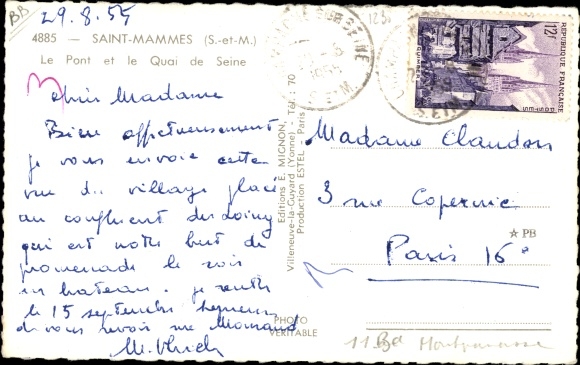 BB
29.8.55
4885 - SAINT-MAMMES (S.-et-M.)
Le Pont et le Quai de Seine
chère Madame
Bien affectueusement
je vous envoie cette
vue du village placé
au confluent du Loing
qui est notre but de
promenade le soir
en bateau. je rentre
le 15 septembre heureux
de vous revoir
M.
Editions E. MIGNON,
Villeneuve-la-Guyard (Yonne), Tél.: 70
Production ESTEL - Paris
PHOTO
VERITABLE
1955
12F
REPUBLIQUE FRANÇAISE
POSTES
QUIMPER
Madame Claudon
3 rue Copernic
★ PB
Paris 16e
11 Bd Montparnasse